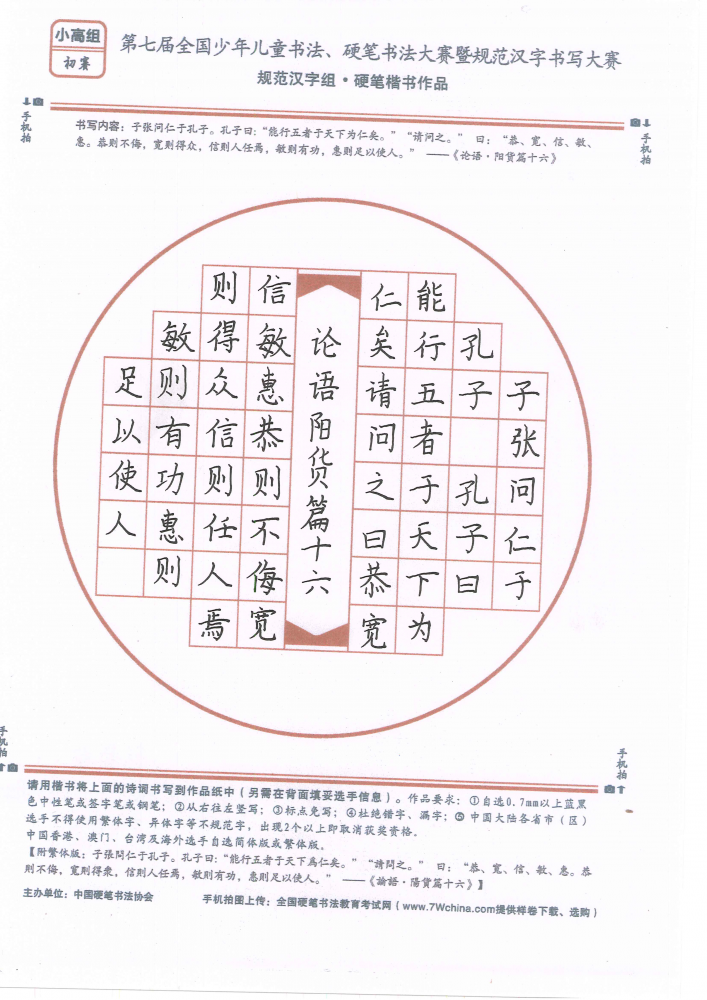 小高组
初赛
第七届全国少年儿童书法、硬笔书法大赛暨规范汉字书写大赛
规范汉字组・硬笔楷书作品
手机拍
手机拍
书写内容：子张问仁于孔子。孔子曰：“能行五者于天下为仁矣。” “请问之。” 曰：“恭、宽、信、敏、
惠。恭则不侮，宽则得众，信则人任焉，敏则有功，惠则足以使人。” ——《论语・阳货篇十六》
子张问仁于
孔子孔子曰
能行五者于天下为
仁矣请问之曰恭宽
论语阳货篇十六
信敏惠恭则不侮宽
则得众信则任人焉
敏则有功惠则
足以使人
手机拍
手机拍
请用楷书将上面的诗词书写到作品纸中（另需在背面填妥选手信息）。作品要求：①自选0.7mm以上蓝黑
色中性笔或签字笔或钢笔；②从右往左竖写；③标点免写；④杜绝错字、漏字；⑤中国大陆各省市（区）
选手不得使用繁体字、异体字等不规范字，出现2个以上即取消获奖资格.
中国香港、澳门、台湾及海外选手自选简体版或繁体版.
【附繁体版：子張問仁于孔子。孔子曰：“能行五者于天下爲仁矣。” “請問之。” 曰：“恭、寬、信、敏、惠。恭
則不侮，寬則得衆，信則人任焉，敏則有功，惠則足以使人。” ——《論語・陽貨篇十六》】
主办单位：中国硬笔书法协会
手机拍图上传：全国硬笔书法教育考试网（www.7Wchina.com提供样卷下载、选购）